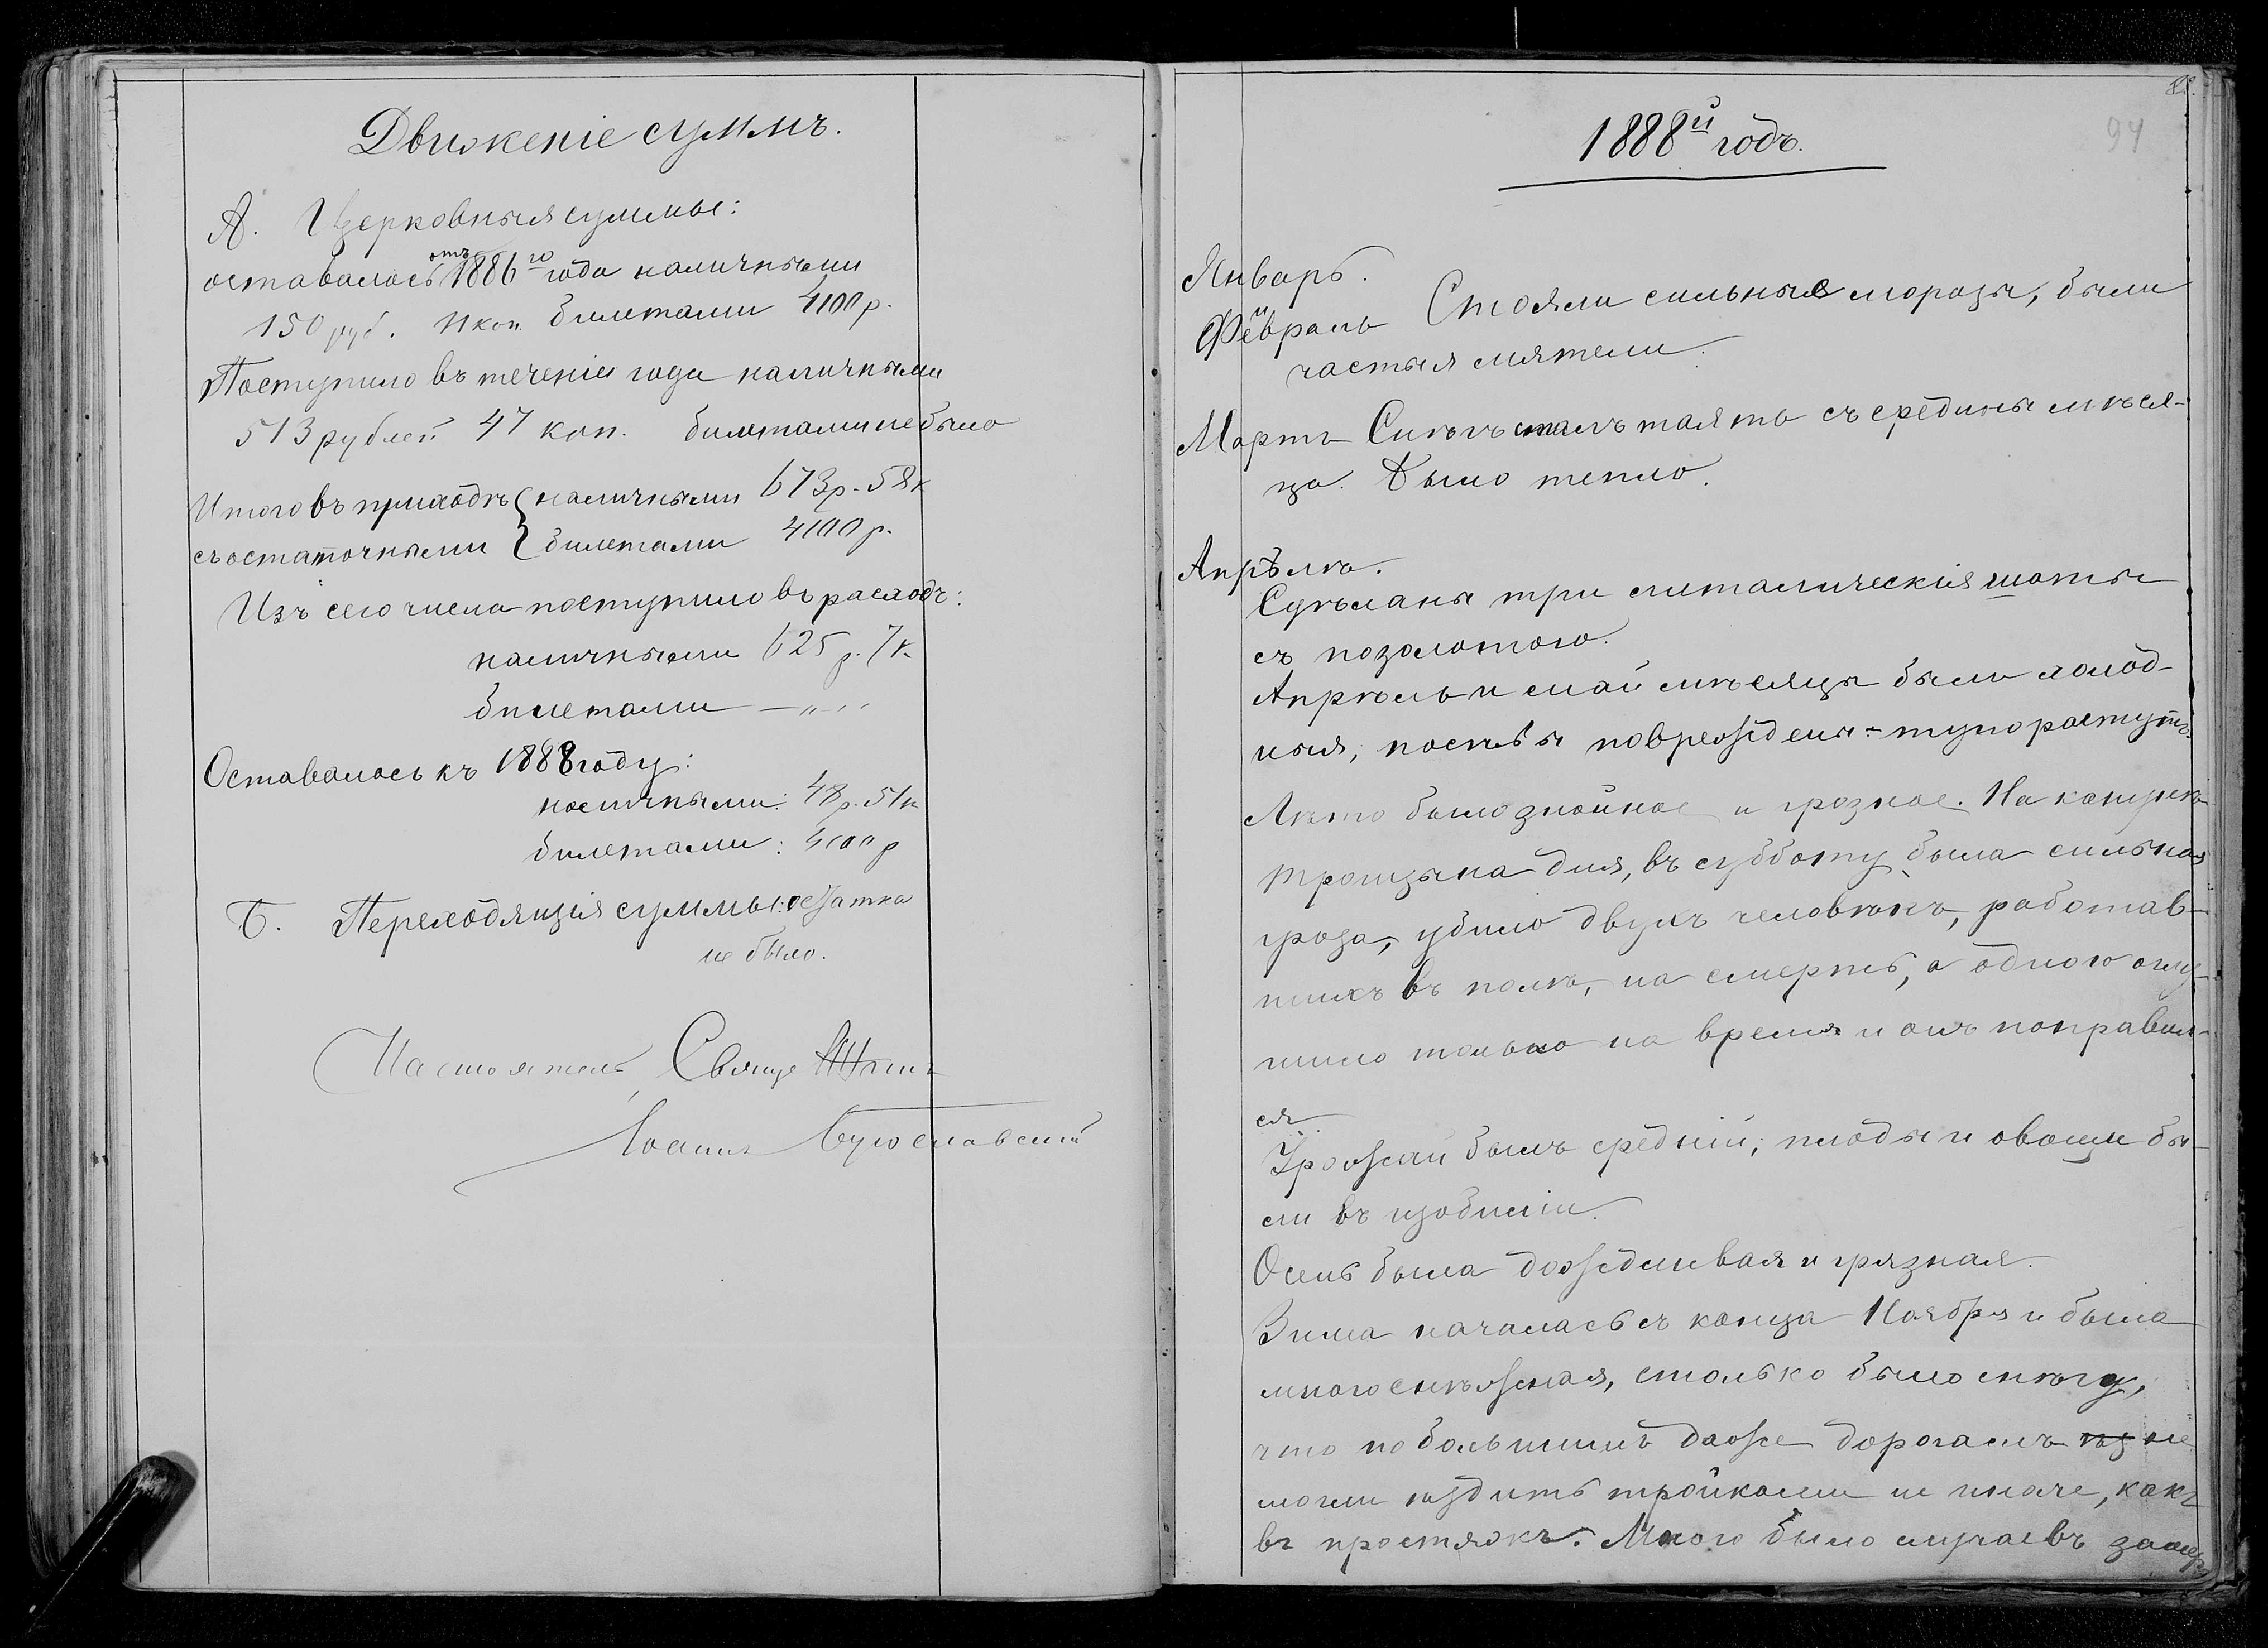 Движеніе суммъ.
А. Церковныя суммы:
оставалось отъ 1886го года наличными
150 руб. 11 коп. билетами 4100 р.
Поступило въ теченіи года наличными
513 рублей 47 коп. билетами не было
Итого въ приходѣ { наличными 673 р. 58 к
съ остаточными { билетами 4100 р.
Изъ сего числа поступило въ расходъ:
наличными 625 р. 7 к.
билетами — „ „
Оставалось къ 1888 году:
наличными: 48 р. 51 к
билетами: 4100 р
Б. Переходящія суммы: остатка
не было.
Настоятель, Свяще
Іоаннъ
1888й годъ.
94
Январь.
и
Февраль Стояли сильные морозы, были
частыя мятели.
Мартъ Снѣгъ сталъ таять съ средины мѣся-
ца. Было тепло.
Апрѣль.
Сдѣланы три металическія
съ позолотою.
Апрѣль и май мѣсяцы были холод-
ныя, посѣвы повреждены - тупо растутъ.
Лѣто было знойное и грозное. На канунѣ
Троицына дня, въ субботу, была сильная
гроза, убило двухъ человѣкъ, работав-
шихъ въ полѣ, на смерть, а одного оглу-
шило только на время и онъ поправил-
ся.
Урожай былъ средній; плоды и овощи бы-
ли въ изобиліи.
Осень была дождливая и грязная.
Зима началась съ конца Ноября и была
многоснѣжная, столько было снѣгу,
что по большимъ даже дорогамъ не
могли ѣздить тройками не иначе, какъ
въ простяжь. Много было случаевъ замер-